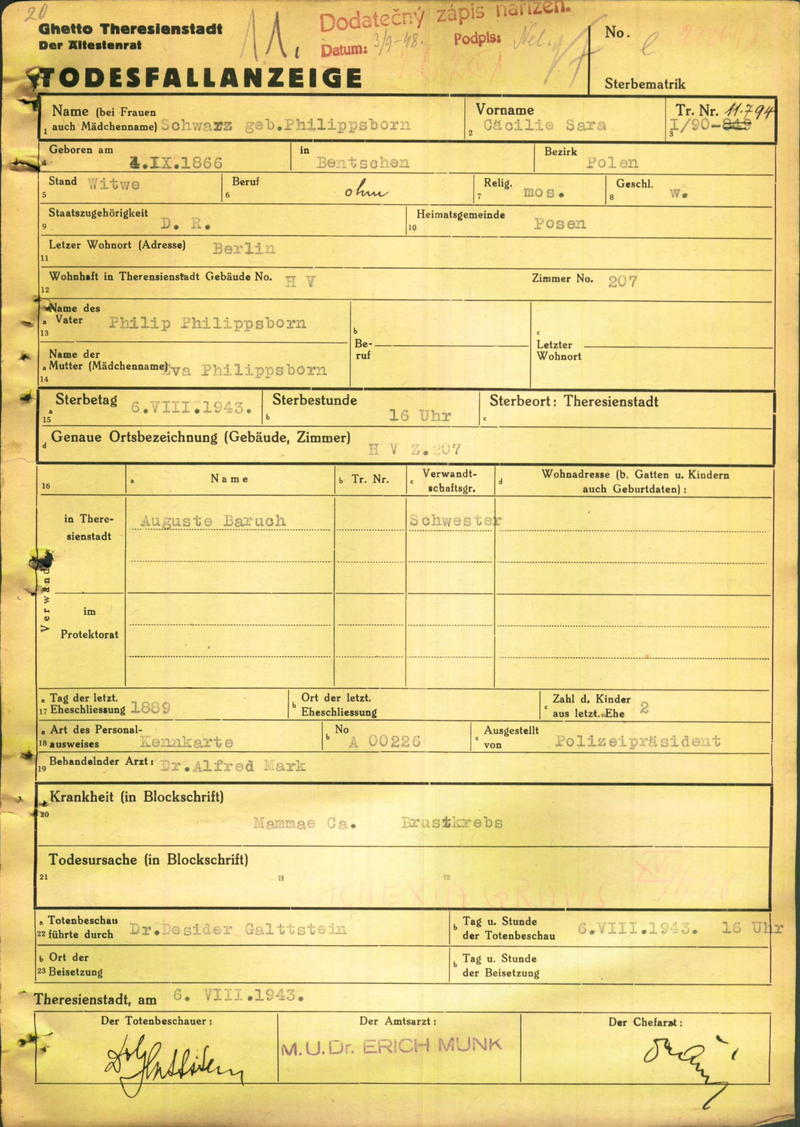 20
Ghetto Theresienstadt
Der Ältestenrat
11.
Dodatečný zápis nařízen.
Datum: 3/9-48. Podpis:
No.
TODESFALLANZEIGE
Sterbematrik
Name (bei Frauen
1 auch Mädchenname) Schwarz geb.Philippsborn
Vorname
2 Cäcilie Sara
Tr. Nr. 11.794
3 I/90-849
4 Geboren am 4.IX.1866 in Bentschen Bezirk Polen
Stand Witwe Beruf ohne Relig. mos. Geschl. w.
5 6 7 8
Staatszugehörigkeit D. R. Heimatsgemeinde Posen
9 10
Letzer Wohnort (Adresse) Berlin
11
Wohnhaft in Therensienstadt Gebäude No. H V Zimmer No. 207
12
Name des
a Vater Philip Philippsborn
13
b Be-
ruf
c Letzter
Wohnort
Name der
a Mutter (Mädchenname) Eva Philippsborn
14
a Sterbetag 6.VIII.1943. b Sterbestunde 16 Uhr c Sterbeort: Theresienstadt
15
d Genaue Ortsbezeichnung (Gebäude, Zimmer) H V Z.207
16 a Name b Tr. Nr. c Verwandt-
schaftsgr. d Wohnadresse (b. Gatten u. Kindern
auch Geburtdaten) :
Verwandte
in There-
sienstadt
Auguste Baruch Schwester
im
Protektorat
a Tag der letzt.
17 Eheschliessung 1889
b Ort der letzt.
Eheschliessung
c Zahl d. Kinder
aus letzt. Ehe 2
a Art des Personal-
18 ausweises Kennkarte
b No A 00226
c Ausgestellt
von Polizeipräsident
19 Behandelnder Arzt: Dr.Alfred Mark
Krankheit (in Blockschrift)
20
Mammae Ca. Brustkrebs
Todesursache (in Blockschrift)
21 " "
a Totenbeschau
22 führte durch Dr.Desider Galttstein
b Tag u. Stunde
der Totenbeschau 6.VIII.1943. 16 Uhr
b Ort der
23 Beisetzung
b Tag u. Stunde
der Beisetzung
Theresienstadt, am 6. VIII.1943.
Der Totenbeschauer:
Der Amtsarzt:
M.U.Dr. ERICH MUNK
Der Chefarzt: